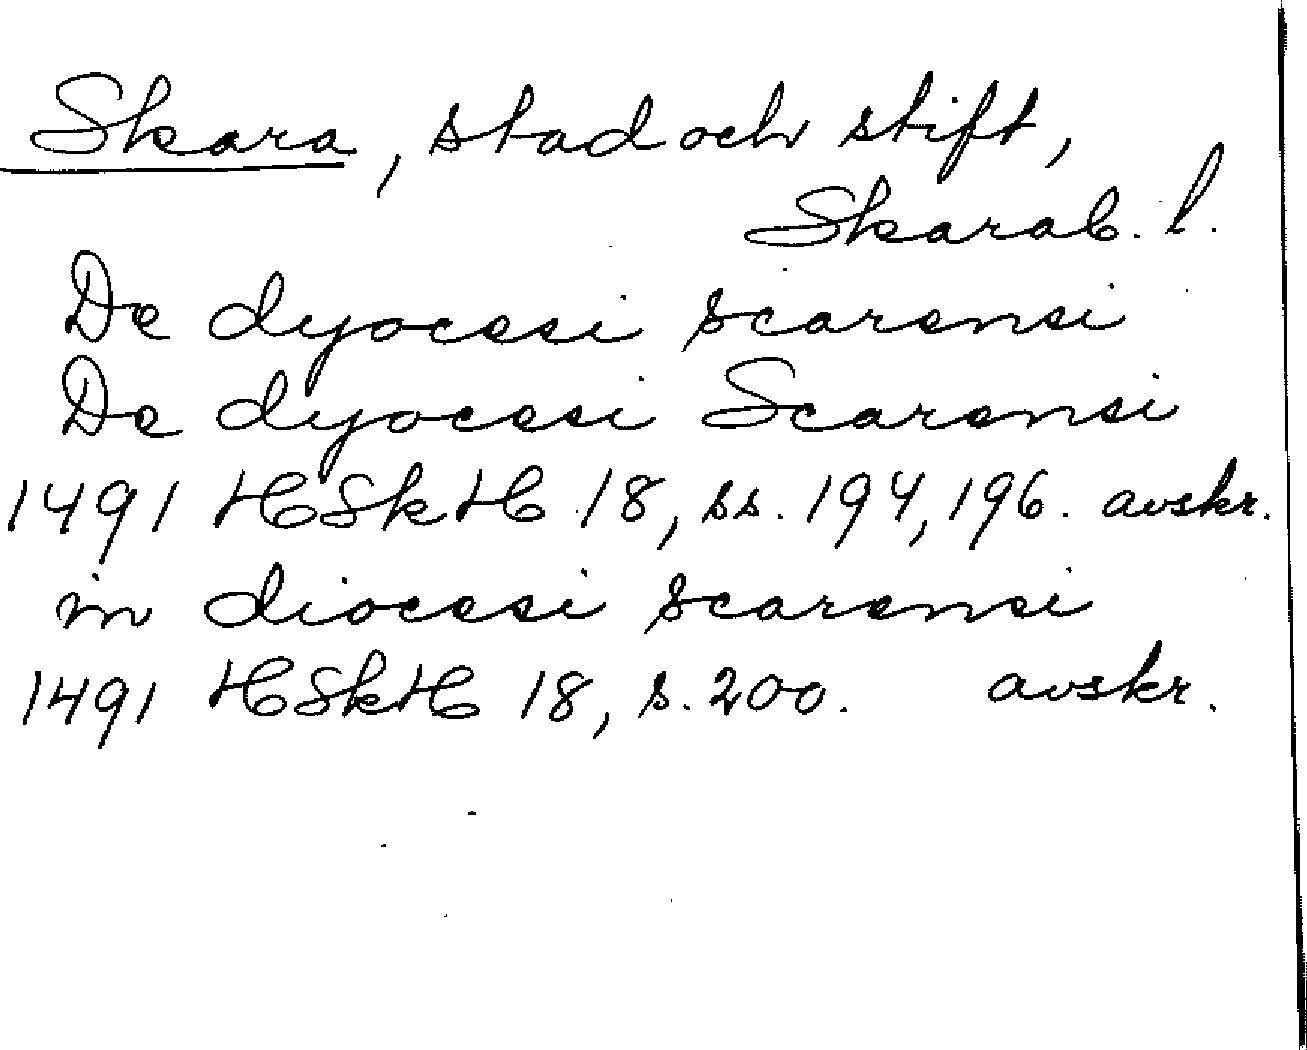 Skara, stad och stift,
Skarab. l.
De dyocesi scarensi
De dyocesi Scarensi
1491 HSkH 18, ss. 194, 196. avskr.
in diocesi scarensi
1491 HSkH 18, s. 200. avskr.